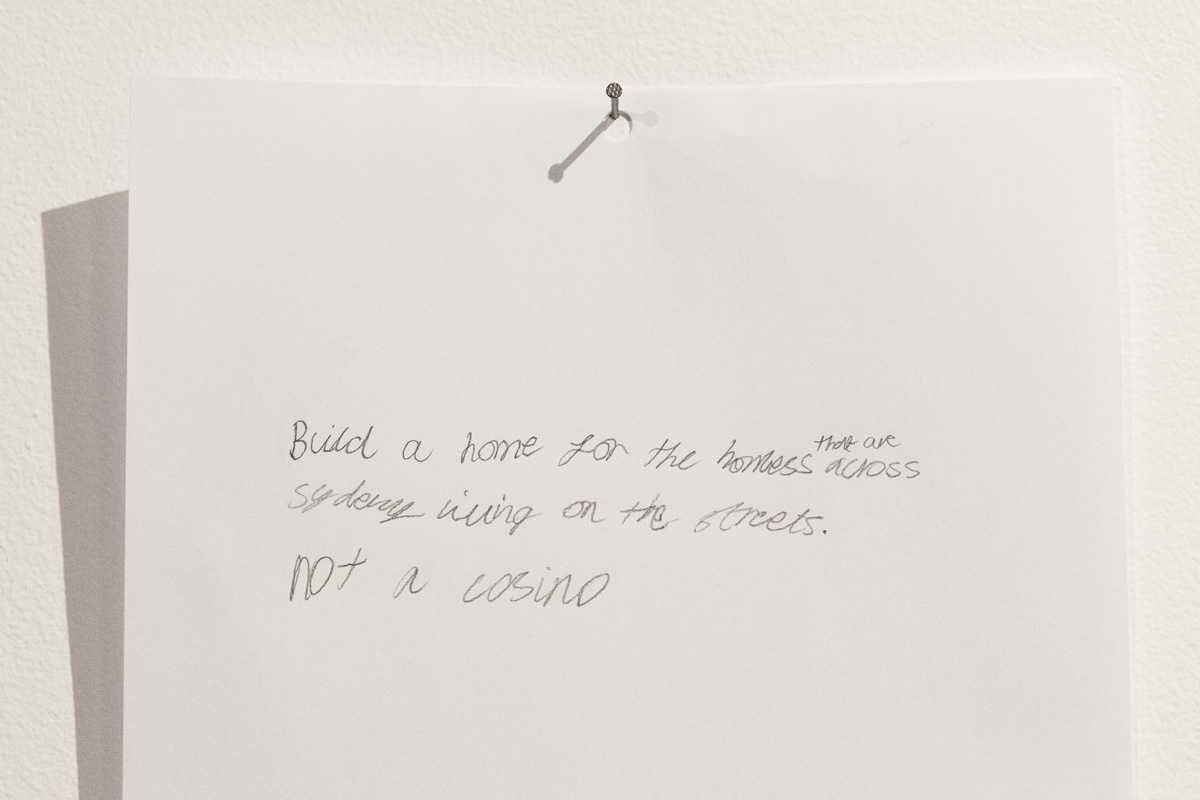 Build a home for the homless that are across
sydeny living on the streets.
not a casino